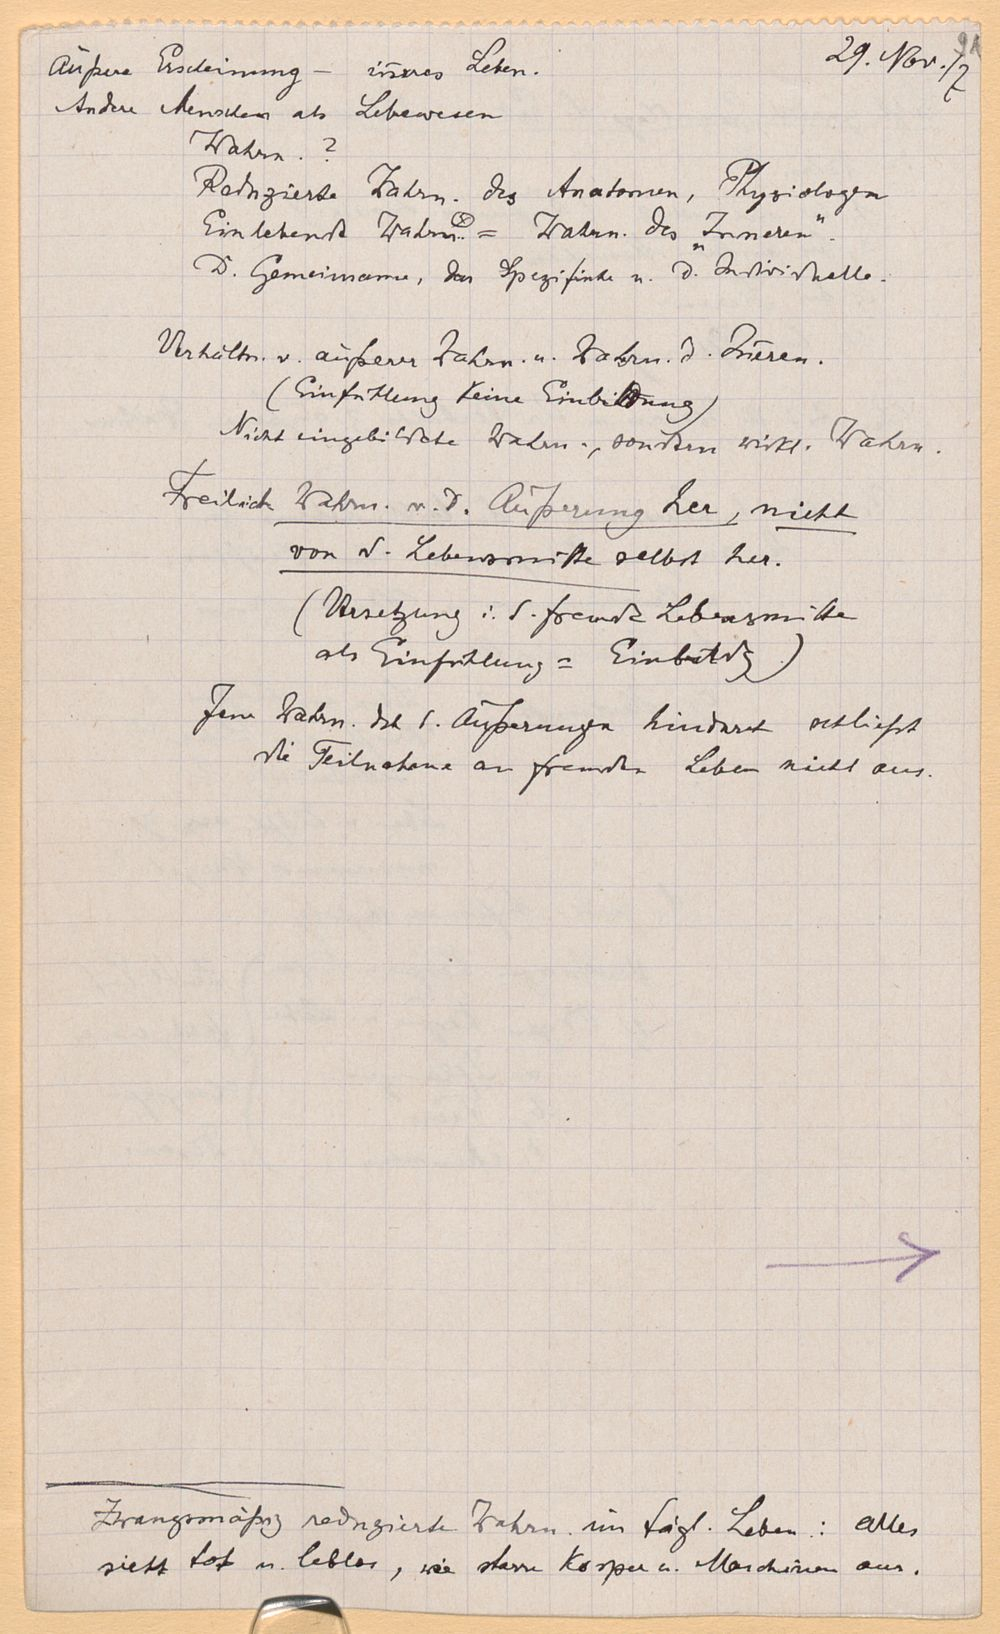 29. Nov. /7
Äußere Erscheinung – inneres Leben.
Andere Menschen als Lebewesen
Wahrn. ?
Reduzierte Wahrn. des Anatomen, Physiologen
Einlebende Wahrn. ⊗ = Wahrn. des „Inneren".
D. Gemeinsame, das Spezifische u. d. Individuelle.
Verhältn. v. äußerer Wahrn. u. Wahrn. d. Inneren.
(Einfühlung keine Einbildung)
Nicht eingebildete Wahrn., sondern wirkl. Wahrn.
Freilich Wahrn. v. d. Äußerung her, nicht
von d. Lebensmitte selbst her.
(Versetzung i. d. fremde Lebensmitte
als Einfühlung = Einbildg)
Jene Wahrn. dch d. Äußerungen hindurch schließt
die Teilnahme an fremden Leben nicht aus.
Zwangsmäßig reduzierte Wahrn. im tägl. Leben: alles
sieht tot u. leblos, wie starre Körper u. Maschinen aus.